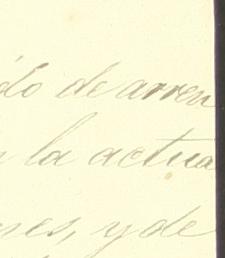 do de arren
la actua
nes, y de